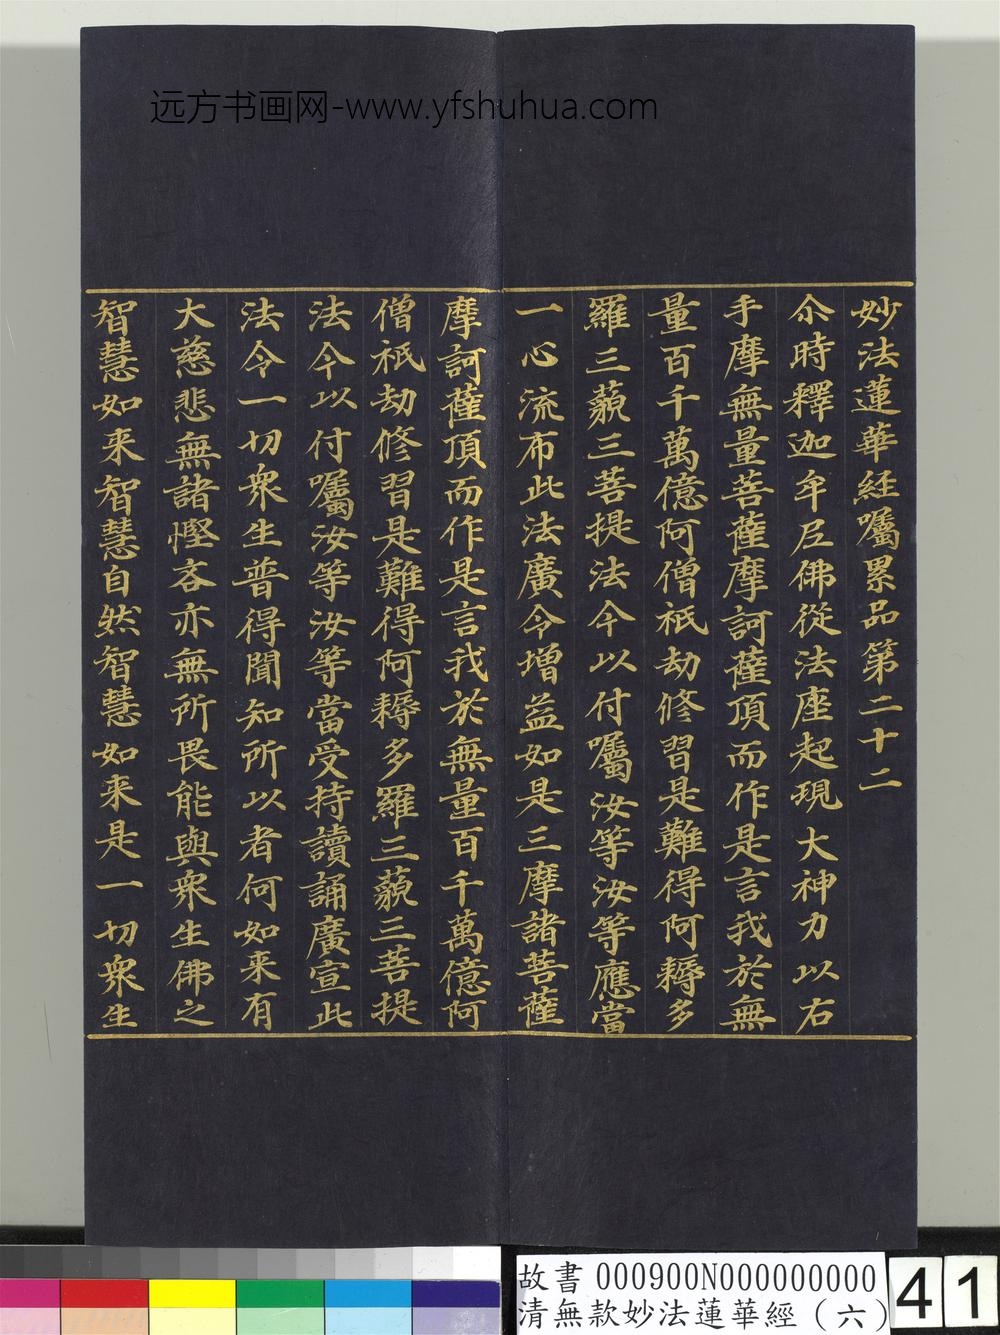 远方书画网-www.yfshuhua.com
妙法蓮華經囑累品第二十二
尒時釋迦牟尼佛從法座起現大神力以右
手摩無量菩薩摩訶薩頂而作是言我於無
量百千萬億阿僧祇劫修習是難得阿耨多
羅三藐三菩提法今以付囑汝等汝等應當
一心流布此法廣令增益如是三摩諸菩薩
摩訶薩頂而作是言我於無量百千萬億阿
僧祇劫修習是難得阿耨多羅三藐三菩提
法今以付囑汝等汝等當受持讀誦廣宣此
法令一切衆生普得聞知所以者何如来有
大慈悲無諸慳吝亦無所畏能與衆生佛之
智慧如来智慧自然智慧如来是一切衆生
故書 000900N000000000
清無款妙法蓮華經（六）
41